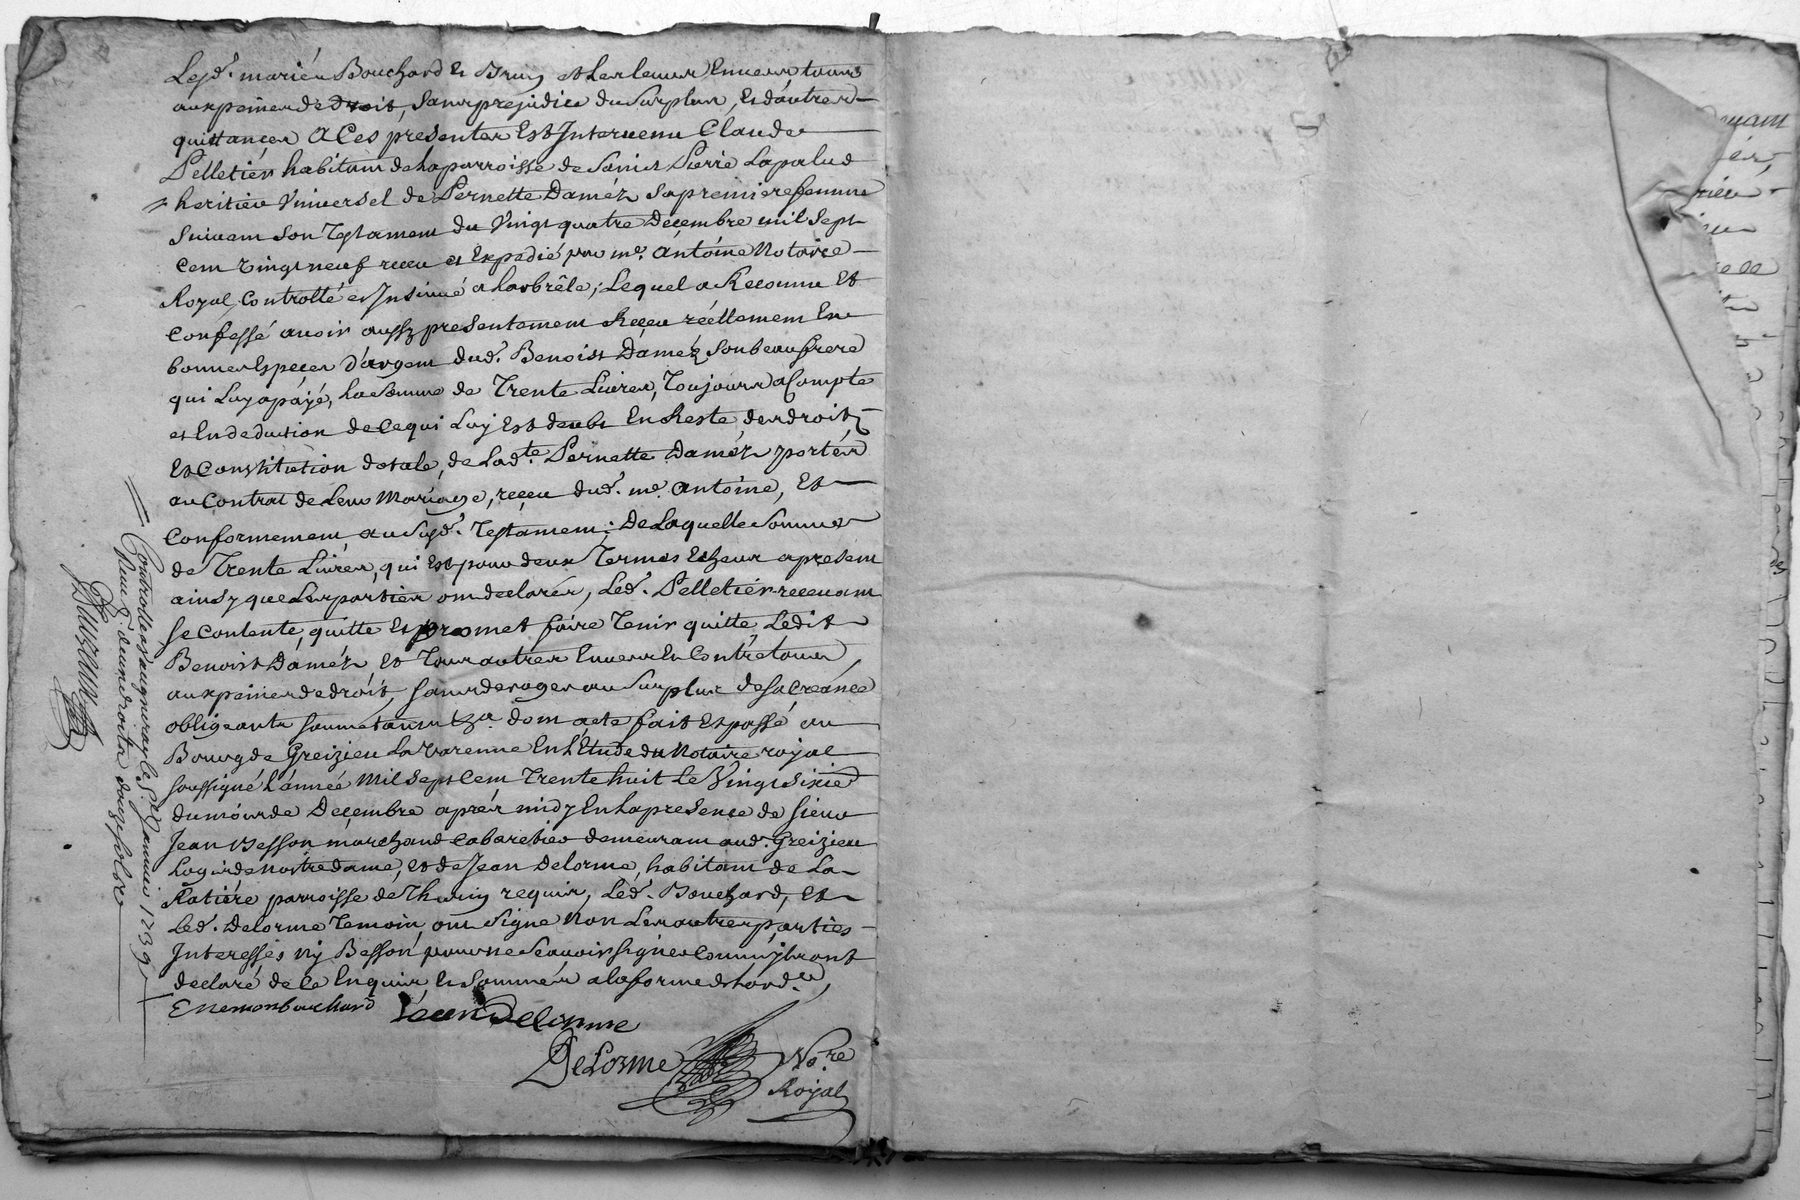 Lesd. mariés Bouchard et Bruy et les leurs Envers tous
aux peines de droit, Sans prejudice du Surplus, Et dautres
quittances A Ces presentes Est Intervenu Claude
Pelletier habitant de La parroisse de Saint Pierre Lapalud
heritier Universel de Pernette Daméz Sa premiere femme
Suivant Son Testament du Vingt quatre Decembre mil Sept
Cent vingt neuf receu et Expedié par me. Antoine Notaire
Royal Controllé et Insinué a Larbrêle; Lequel a Reconnu Et
Confessé avoir aussy presentement Receu réellement En
bonnes Especes D'argent dud. Benoist Daméz Son beaufrere
qui Luy a payé, La Somme de Trente Livres, Toujours a Compte
et En deduction de Ce qui Luy Est deubt En Reste, des droits
Et Constitution dotale, de Ladte. Pernette Daméz portés
au Contrat de Leur Mariage, receu dud. me. Antoine, Et
Conformement au Susd. Testament; De Laquelle Somme
de Trente Livres, qui Est pour deux Termes Echeus a present
ainsy que Les parties ont declarés, Led. Pelletier recevant
Se Contente, quitte Et promet faire Tenir quitte Ledit
Benoist Daméz Et Tous autres Envers Et Contre tous,
aux peines de droit, Sans deroger au Surplus de Sa Creance
obligeants Soumettants &a. dont acte fait Et passé au
Bourg de Greizieu La Varenne En L'Etude du Notaire royal
Soussigné L'année Mil Sept Cent Trente huit Le Vingt Sixie
du mois de Decembre aprés midy En La presence de Sieur
Jean Besson marchand Cabaretier demeurant aud. Greizieu
Logis de Nostre dame, et de Jean Delorme, habitant de La
Ratiére parroisse de Thurin requis, Led. Bouchard, Et
Led. Delorme Temoin, ont Signé Non Les autres parties
Interessés ny Besson pour ne Scavoir Signer Comm' ils ont
declaré de Ce Enquis, Et Sommés a La forme de Lord.ce,
Enemon bouchard Jean Delorme
DeLorme No.re
Royal
Controllé a Vaugneray le 5e Janvier 1739
Receu pour deux droits douze sols